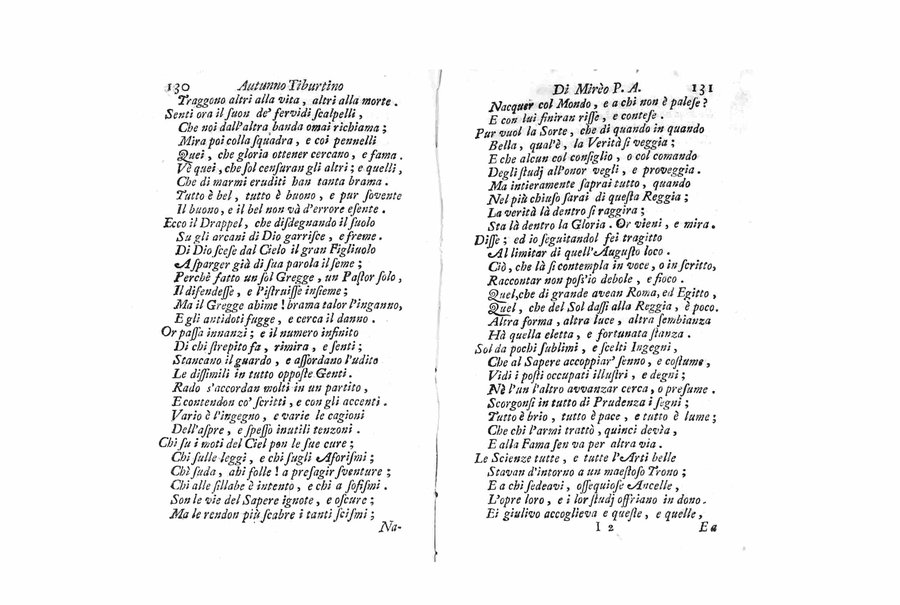 130 Autunno Tiburtino
Traggono altri alla vita, altri alla morte.
Senti ora il ſuon de' fervidi ſcalpelli,
Che noi dall'altra banda omai richiama;
Mira poi colla ſquadra, e coi pennelli
Quei, che gloria ottener cercano, e fama.
Vè quei, che ſol cenſuran gli altri; e quelli,
Che di marmi eruditi han tanta brama.
Tutto è bel, tutto è buono, e pur ſovente
Il buono, e il bel non và d'errore eſente.
Ecco il Drappel, che diſdegnando il ſuolo
Su gli arcani di Dio garriſce, e freme.
Di Dio ſceſe dal Cielo il gran Figliuolo
Aſparger già di ſua parola il ſeme;
Perchè fatto un ſol Gregge, un Paſtor ſolo,
Il difendeſſe, e l'iſtruiſſe inſieme;
Ma il Gregge ahime! brama talor l'inganno,
E gli antidoti fugge, e cerca il danno.
Or paſſa innanzi; e il numero infinito
Di chi ſtrepito fa, rimira, e ſenti;
Stancano il guardo, e aſſordano l'udito
Le diſſimili in tutto oppoſte Genti.
Rado s'accordan molti in un partito,
E contendon co' ſcritti, e con gli accenti.
Vario è l'ingegno, e varie le cagioni
Dell'aſpre, e ſpeſſo inutili tenzoni.
Chi ſu i moti del Ciel pon le ſue cure;
Chi ſulle leggi, e chi ſugli Aforiſmi;
Chi ſuda, ahi folle! a preſagir ſventure;
Chi alle ſillabe è intento, e chi a ſofiſmi.
Son le vie del Sapere ignote, e oſcure;
Ma le rendon più ſcabre i tanti ſciſmi;
Na-
Di Mirèo P. A. 131
Nacquer col Mondo, e a chi non è paleſe?
E con lui finiran riſſe, e conteſe.
Pur vuol la Sorte, che di quando in quando
Bella, qual'è, la Verità ſi veggia;
E che alcun col conſiglio, o col comando
Degli ſtudj all'onor vegli, e proveggia.
Ma intieramente ſaprai tutto, quando
Nel più chiuſo ſarai di queſta Reggia;
La verità là dentro ſi raggira;
Sta là dentro la Gloria. Or vieni, e mira.
Diſſe; ed io ſeguitandol fei tragitto
Al limitar di quell'Auguſto loco.
Ciò, che là ſi contempla in voce, o in ſcritto,
Raccontar non poſs'io debole, e fioco.
Quel, che di grande avean Roma, ed Egitto,
Quel, che del Sol daſſi alla Reggia, è poco.
Altra forma, altra luce, altra ſembianza
Hà quella eletta, e fortunata ſtanza.
Sol da pochi ſublimi, e ſcelti Ingegni,
Che al Sapere accoppiar' ſenno, e coſtume,
Vidi i poſti occupati illuſtri, e degni;
Nè l'un l'altro avvanzar cerca, o preſume.
Scorgonſi in tutto di Prudenza i ſegni;
Tutto è brio, tutto è pace, e tutto è lume;
Che chi l'armi trattò, quinci devìa,
E alla Fama ſen va per altra via.
Le Scienze tutte, e tutte l'Arti belle
Stavan d'intorno a un maeſtoſo Trono;
E a chi ſedeavi, oſſequioſe Ancelle,
L'opre loro, e i lor ſtudj offriano in dono.
Ei giulivo accoglieva e queſte, e quelle,
I 2 Ea